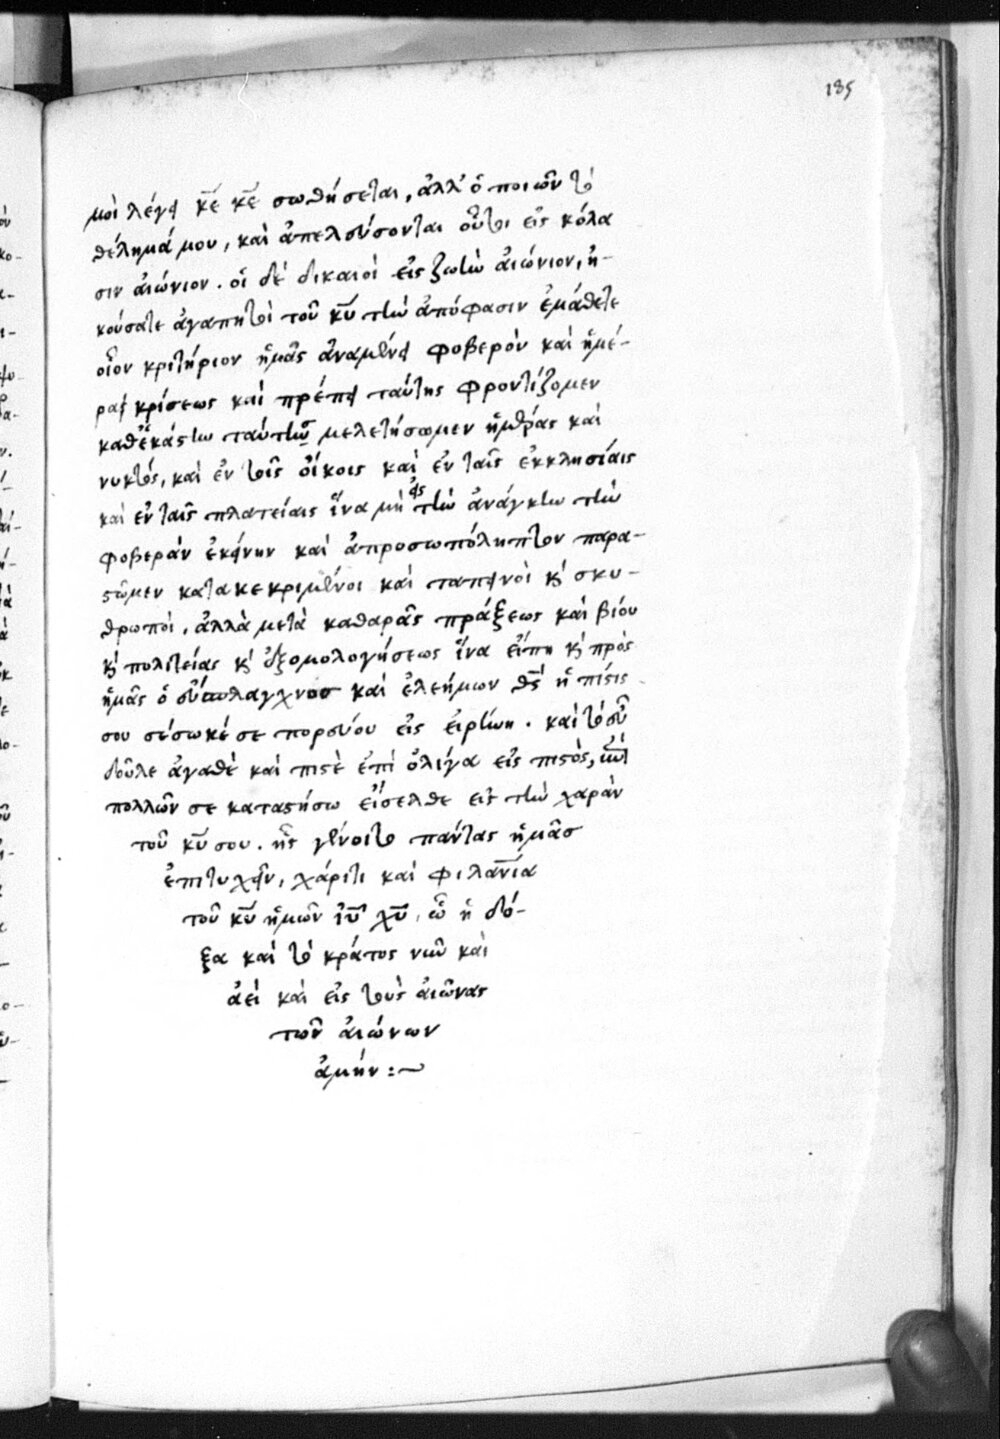 135
μοι λέγει κ̅ε̅ κ̅ε̅ σωθήσεται, ἀλλ' ὁ ποιῶν τὸ
θέλημά μου, καὶ ἀπελεύσονται οὗτοι εἰς κόλα
σιν αἰώνιον. οἱ δὲ δίκαιοι εἰς ζωὴν αἰώνιον, ἠ-
κούσατε ἀγαπητοὶ τοῦ κ̅υ̅ τὴν ἀπόφασιν ἐμάθετε
οἷον κριτήριον ἡμᾶς ἀναμένει φοβερὸν καὶ ἡμέ-
ρας κρίσεως καὶ πρέπει ταύτης φροντίζομεν
καθ' ἑκάστην ταύτην μελετήσωμεν ἡμέρας καὶ
νυκτός, καὶ ἐν τοῖς οἴκοις καὶ ἐν ταῖς ἐκκλησίαις
καὶ ἐν ταῖς πλατείαις ἵνα μὴ εἰς τὴν ἀνάγκην τὴν
φοβερὰν ἐκείνην καὶ ἀπροσωπόληπτον παρα-
στῶμεν κατακεκριμένοι καὶ ταπεινοὶ κ̀ σκυ-
θρωποί, ἀλλὰ μετὰ καθαρᾶς πράξεως καὶ βίου
κ̀ πολιτείας κ̀ ἐξομολογήσεως ἵνα εἴπῃ κ̀ πρὸς
ἡμᾶς ὁ εὔσπλαγχνος καὶ ἐλεήμων θ̅ς̅ ἡ πίστις
σου σέσωκέ σε πορεύου εἰς εἰρήνη. καὶ τὸ εὖ
δοῦλε ἀγαθὲ καὶ πιστὲ ἐπὶ ὀλίγα εἶς πιστὸς, ἐπὶ
πολλῶν σε καταστήσω εἴσελθε εἰς τὴν χαρὰν
τοῦ κ̅υ̅ σου. ἧς γένοιτο πάντας ἡμᾶς
ἐπιτυχεῖν, χάριτι καὶ φιλα̅ν̅ία
τοῦ κ̅υ̅ ἡμῶν ἰ̅υ̅ χ̅υ̅, ᾧ ἡ δό-
ξα καὶ τὸ κράτος νῦν καὶ
ἀεὶ καὶ εἰς τοὺς αἰῶνας
τῶν αἰώνων
ἀμήν :~